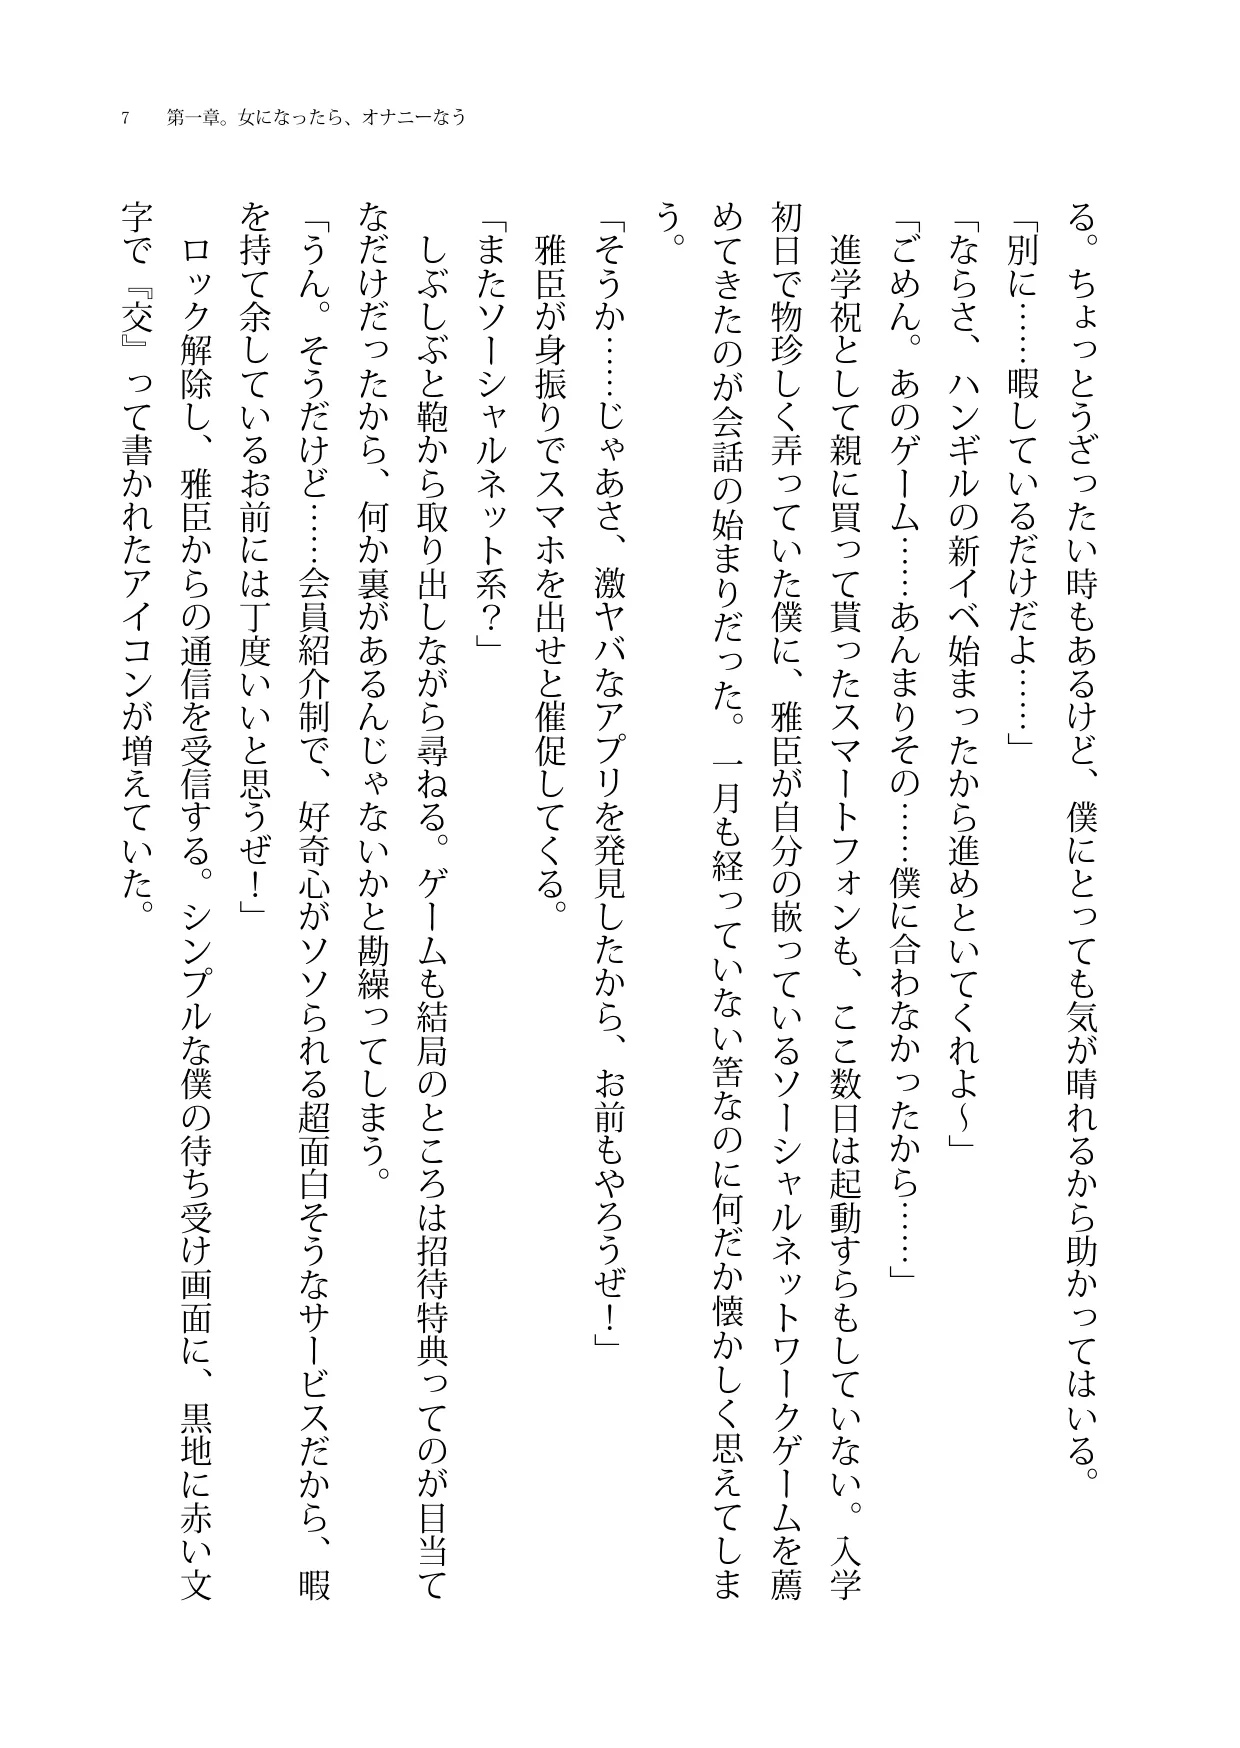 7 第一章。女になったら、オナニーなう
る。ちょっとうざったい時もあるけど、僕にとっても気が晴れるから助かってはいる。
「別に……暇しているだけだよ……」
「ならさ、ハンギルの新イベ始まったから進めといてくれよ～」
「ごめん。あのゲーム……あんまりその……僕に合わなかったから……」
進学祝として親に買って貰ったスマートフォンも、ここ数日は起動すらもしていない。入学
初日で物珍しく弄っていた僕に、雅臣が自分の嵌っているソーシャルネットワークゲームを薦
めてきたのが会話の始まりだった。一月も経っていない筈なのに何だか懐かしく思えてしま
う。
「そうか……じゃあさ、激ヤバなアプリを発見したから、お前もやろうぜ！」
雅臣が身振りでスマホを出せと催促してくる。
「またソーシャルネット系？」
しぶしぶと鞄から取り出しながら尋ねる。ゲームも結局のところは招待特典ってのが目当て
なだけだったから、何か裏があるんじゃないかと勘繰ってしまう。
「うん。そうだけど……会員紹介制で、好奇心がソソられる超面白そうなサービスだから、暇
を持て余しているお前には丁度いいと思うぜ！」
ロック解除し、雅臣からの通信を受信する。シンプルな僕の待ち受け画面に、黒地に赤い文
字で『交』って書かれたアイコンが増えていた。